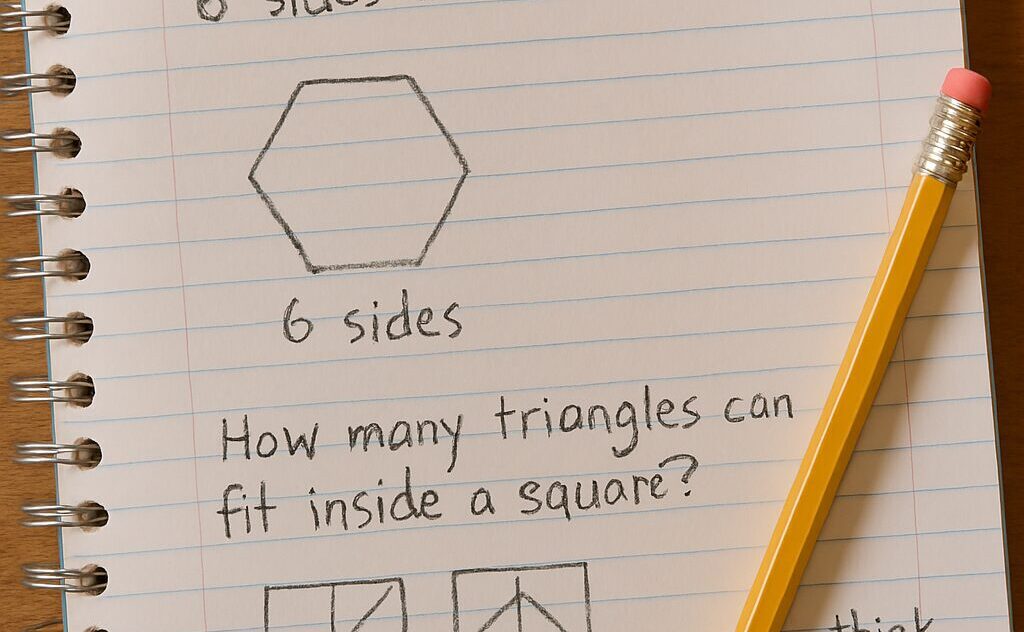 6 sides
How many triangles can
fit inside a square?
think